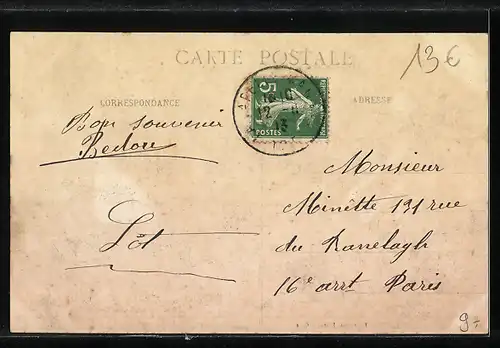 CARTE POSTALE
13€
CORRESPONDANCE
ADRESSE
Bon souvenir
Bedou
Lot
5c
POSTES
13
Monsieur
Minette 131 rue
du Ranelagh
16e arrt Paris
9-